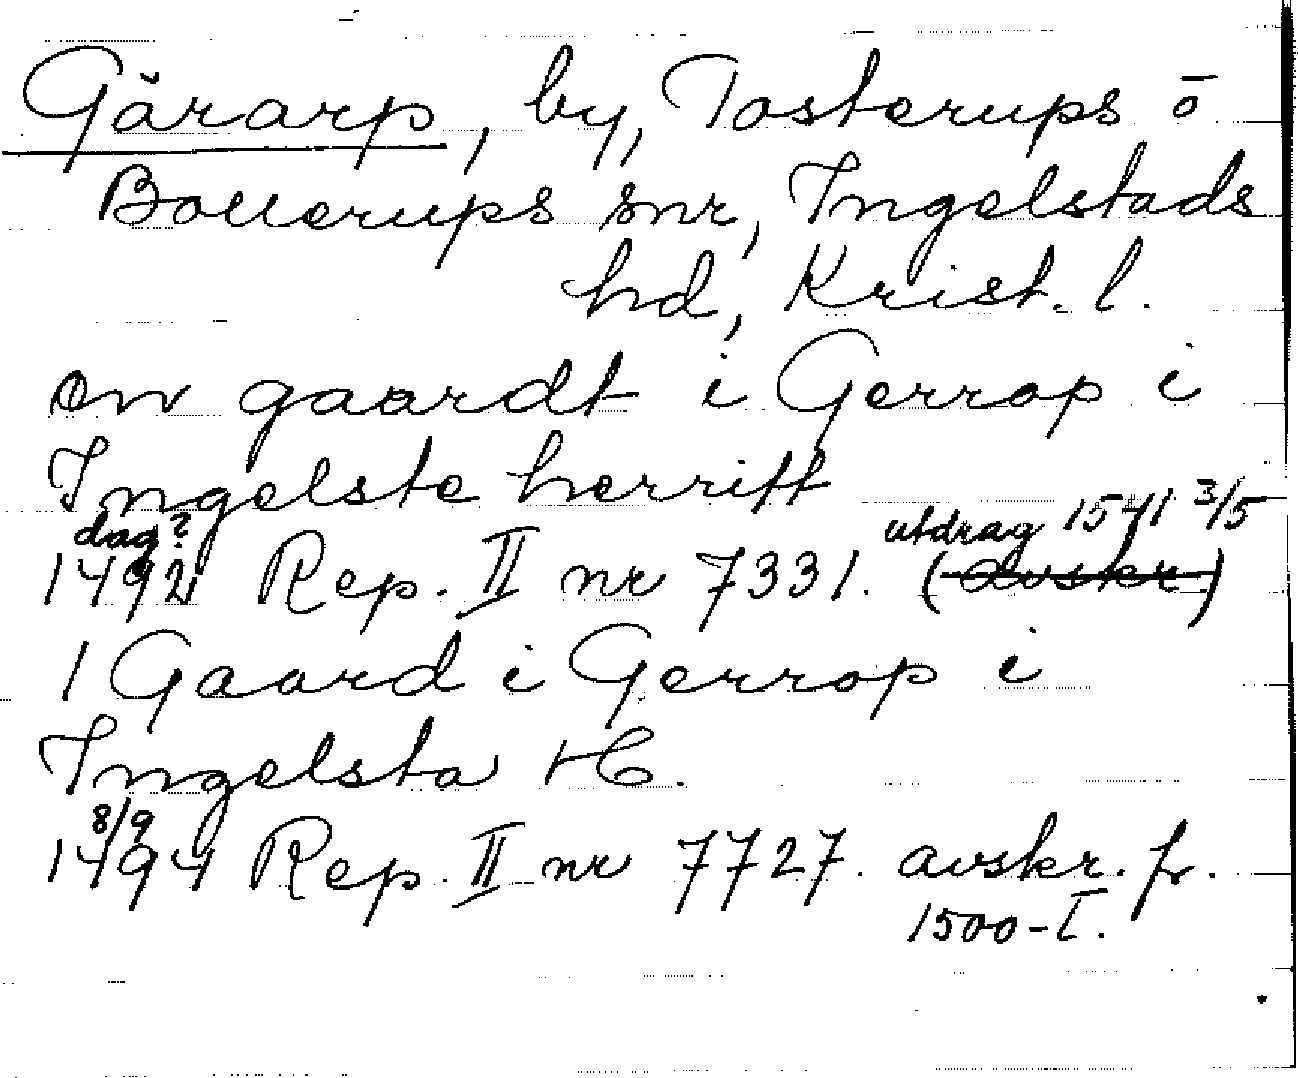 Gärarp, by, Tosterups o
Bollerups snr, Ingelstads
hd, Krist. l.
en gaardt i Gerrop i
Ingelste herritt
dag? utdrag 1541 3/5
1492 Rep. II nr 7331. (Avskr)
1 Gaard i Gerrop i
Ingelsta H.
8/9
1494 Rep. II nr 7727. avskr. fr.
1500-t.